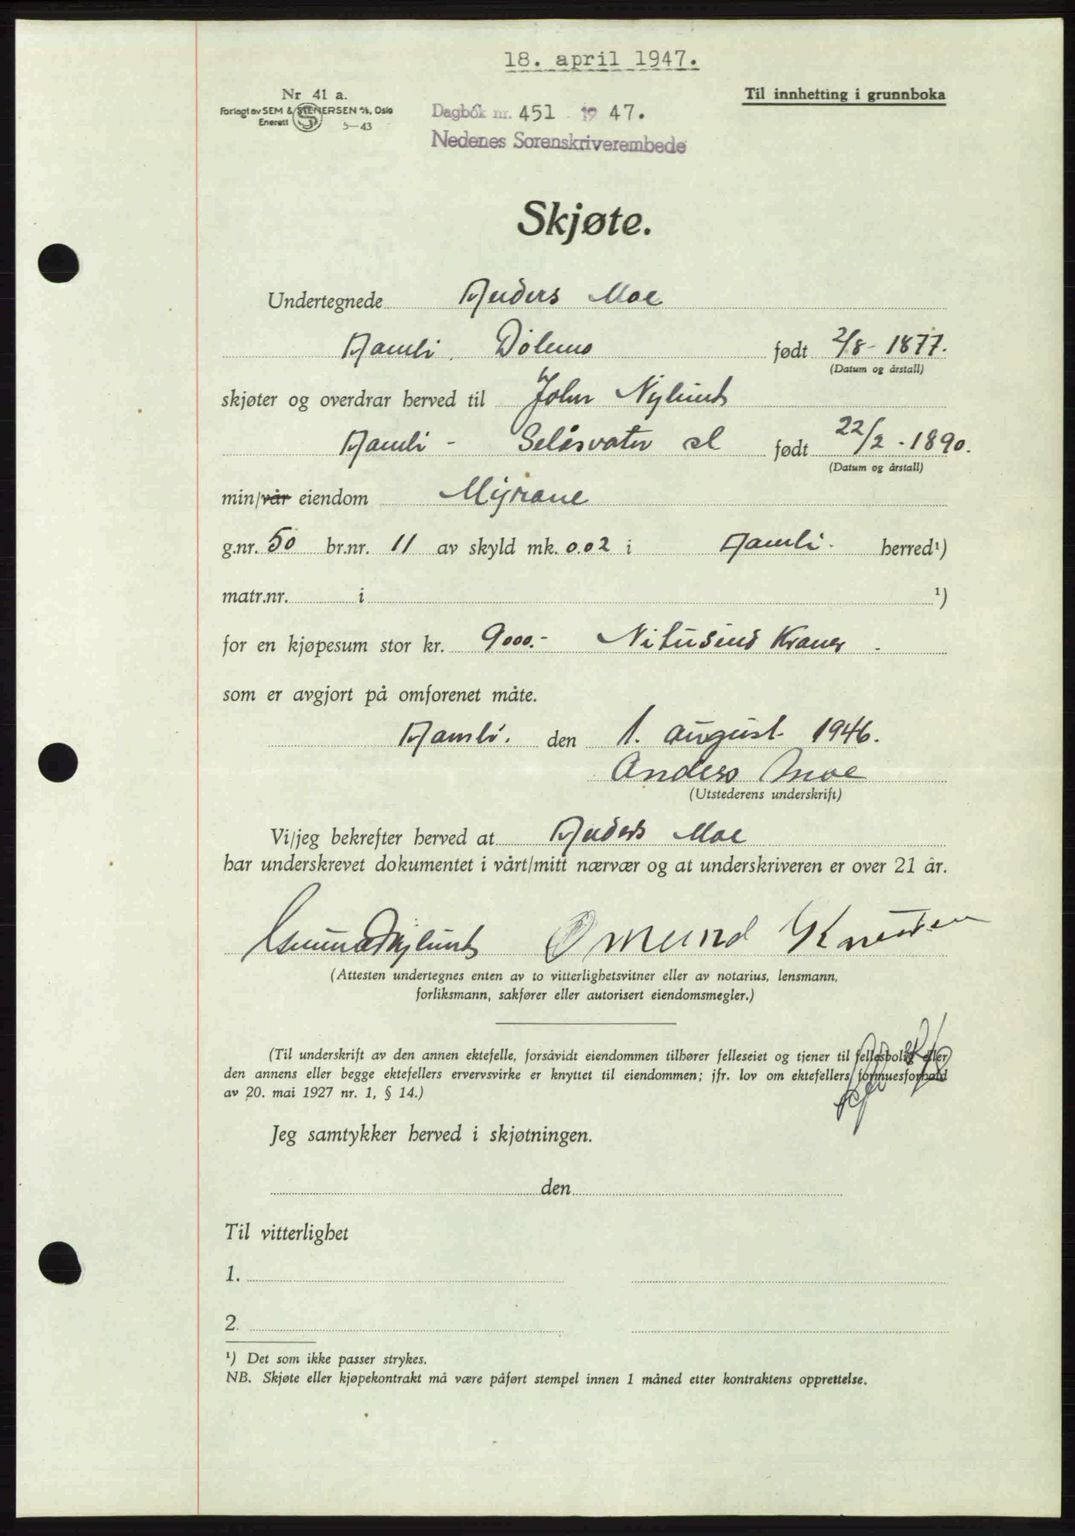 18. april 1947.
Nr 41 a.
Til innhefting i grunnboka
Forlagt av SEM & STENERSEN A/S, Oslo
Enerett
5-43
Dagbok nr. 451 19 47.
Nedenes Sorenskriverembede
Skjøte.
Undertegnede Anders Moe
Aamli. Dølemo født 2/8-1877.
(Datum og årstall)
skjøter og overdrar herved til John Nylund
Aamli - Selåsvatn st født 22/2-1890.
(Datum og årstall)
min/vår eiendom Myrane
g.nr. 50 br.nr. 11 av skyld mk. 0.02 i Aamli. herred¹)
matr.nr. i ¹)
for en kjøpesum stor kr. 9000.- Nitusind Kroner.
som er avgjort på omforenet måte.
Aamli. den 1. august 1946.
Anders Moe
(Utstederens underskrift)
Vi/jeg bekrefter herved at Anders Moe
har underskrevet dokumentet i vårt/mitt nærvær og at underskriveren er over 21 år.
Nylund Ømund
(Attesten undertegnes enten av to vitterlighetsvitner eller av notarius, lensmann,
forliksmann, sakfører eller autorisert eiendomsmegler.)
(Til underskrift av den annen ektefelle, forsåvidt eiendommen tilhører felleseiet og tjener til fellesbolig eller
den annens eller begge ektefellers ervervsvirke er knyttet til eiendommen; jfr. lov om ektefellers formuesforhold
av 20. mai 1927 nr. 1, § 14.)
Jeg samtykker herved i skjøtningen.
den
Til vitterlighet
1.
2.
¹) Det som ikke passer strykes.
NB. Skjøte eller kjøpekontrakt må være påført stempel innen 1 måned etter kontraktens opprettelse.